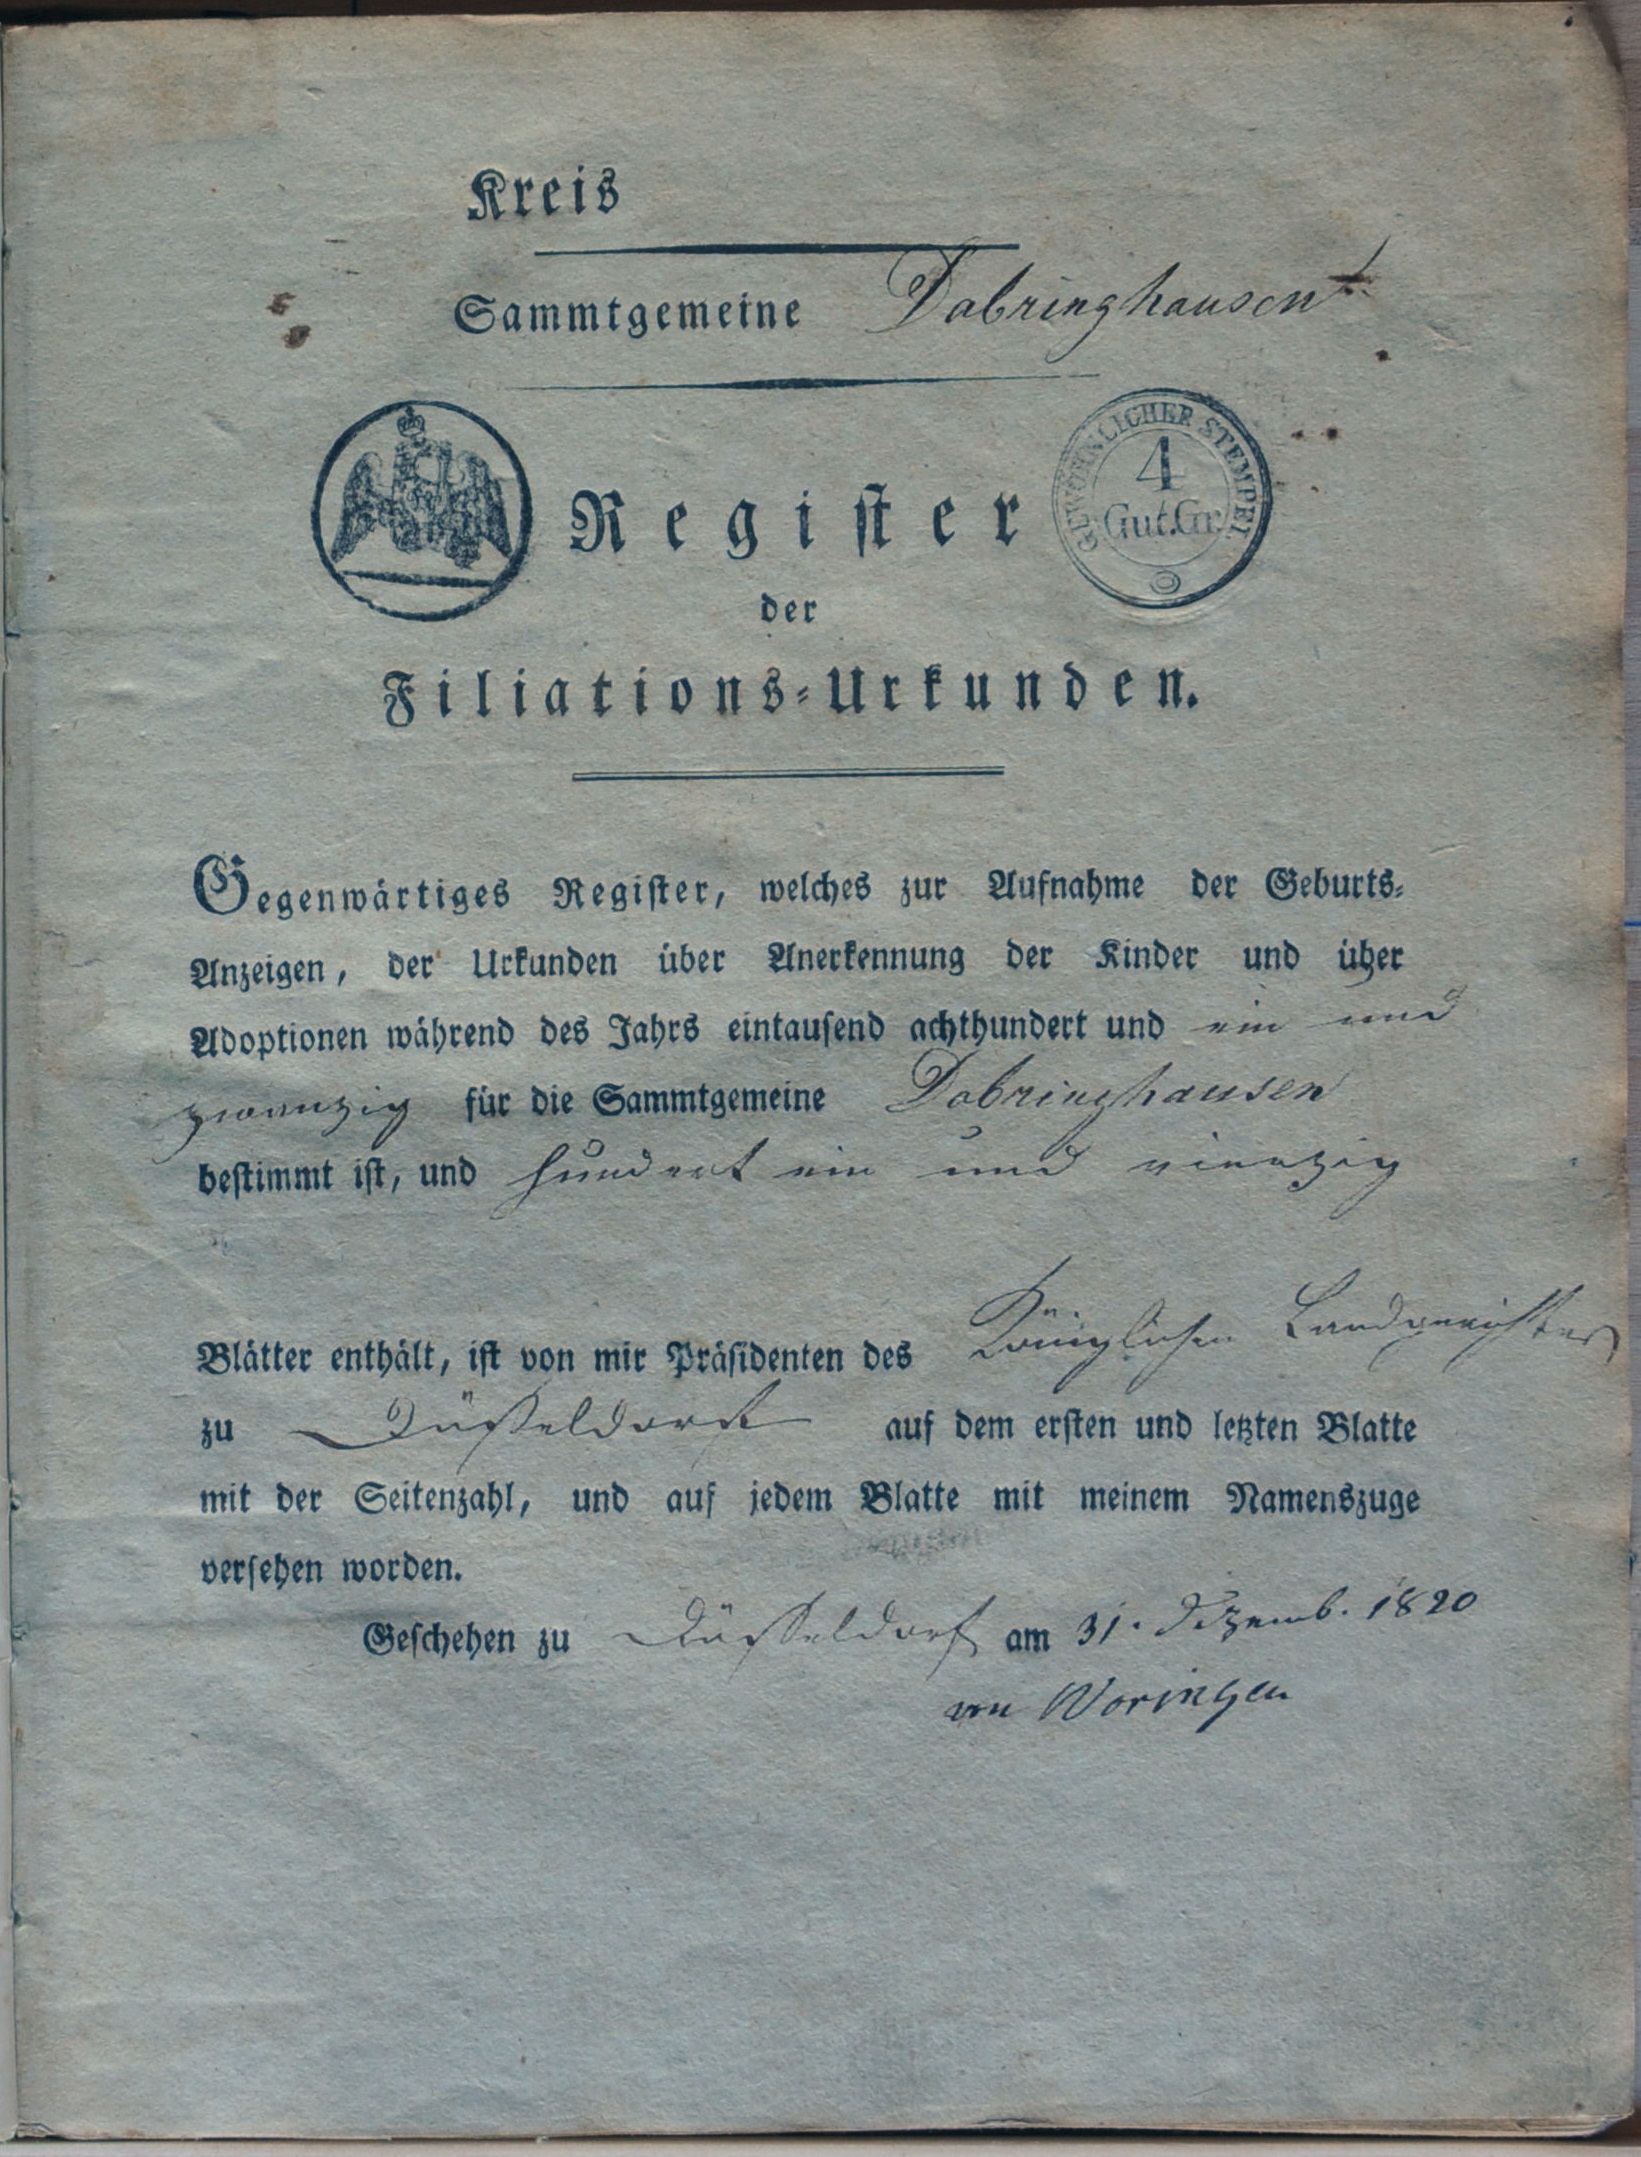 Kreis
Sammtgemeine Dabringhausen
GEWÖHNLICHER STEMPEL
4
Gut.Gr.
Register
der
Filiations-Urkunden.
Gegenwärtiges Register, welches zur Aufnahme der Geburts-
Anzeigen, der Urkunden über Anerkennung der Kinder und über
Adoptionen während des Jahrs eintausend achthundert und ein und
zwanzig für die Sammtgemeine Dabringhausen
bestimmt ist, und hundert ein und vierzig
Blätter enthält, ist von mir Präsidenten des Königlichen Landgerichtes
zu Düsseldorf auf dem ersten und letzten Blatte
mit der Seitenzahl, und auf jedem Blatte mit meinem Namenszuge
versehen worden.
Geschehen zu Düsseldorf am 31. Dezemb. 1820
von Woringen